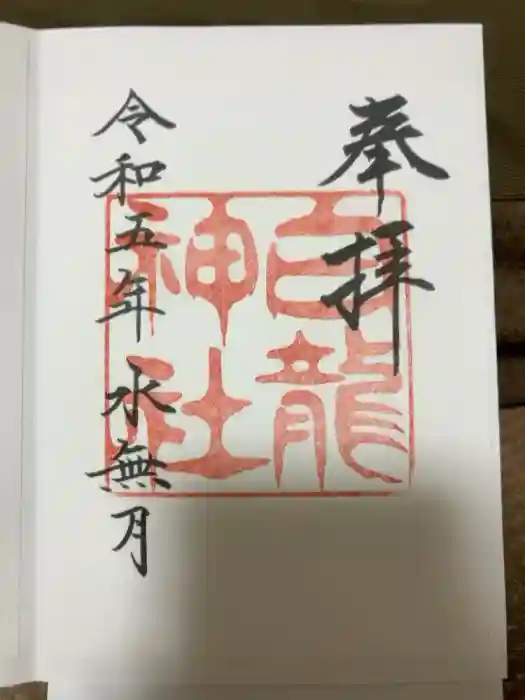 奉拝
白龍
神社
令和五年 水無月